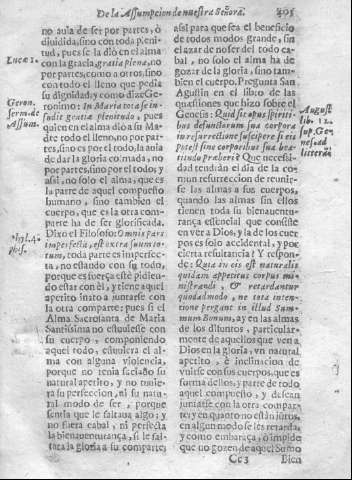 De la Assumpcion de nuestra Señora. 405
no aula de ser por partes, ò
diuidida, sino con toda pleni-
tud, pues se la dió en el alma
con la gracia, gratia plena, no
por partes, como a otros, sino
con todo el lleno que pedia
su dignidad y como dize Ge-
ronimo: In Maria tota se in-
fudit gratiæ plenitudo, pues
quien en el alma dió a su Ma-
dre todo el lleno, no por par-
tes, sino es por el todo, la auia
de dar la gloria colmada, no
por partes, sino por el todo; y
assi, no solo el alma, que es
la parte de aquel compuesto
humano, sino tambien el
cuerpo, que es la otra com-
parte ha de ser glorificada.
Dixo el Filosofo: Omnis pars
imperfecta, est extra suum to-
tum, toda parte es imperfec-
ta, no estando con su todo,
porque es fuerça estè pidien-
do estar con èl, y tiene aquel
apetito inato a juntarse con
la otra comparte: pues si el
Alma Sacrosanta de Maria
Santissima no estuuiesse con
su cuerpo, componiendo
aquel todo, estuuiera el al-
ma con alguna violencia,
porque no tenia saciado su
natural apetito, y no tuuie-
ra su perfeccion, ni su natu-
ral modo de ser, porque
sentia que le faltaua algo; y
no fuera cabal, ni perfecta
la bienauenturança, si le fal-
tara la gloria a su comparte;
Lucæ 1.
Geron.
serm. de
Assum.
assi para que sea el beneficio
de todos modos grande, sin
el azar de no ser del todo ca-
bal, no solo el alma ha de
gozar de la gloria, sino tam-
bien el cuerpo. Pregunta San
Agustin en el libro de las
questiones que hizo sobre el
Genesis: Quid sit opus spiriti-
bus defunctorum sua corpora
in resurrectione suscipere si eis
potest sine corporibus sua bea-
titudo præberi? Que necessi-
dad tendràn el dia de la co-
mun resurreccion de reunir-
se las almas a sus cuerpos,
quando las almas sin ellos
tienen toda su bienauentu-
rança essencial que consiste
en ver a Dios, y la de los cuer-
pos es solo accidental, y por
cierta resultancia? Y respon-
de: Quia in eis est naturalis
quidam appetitus corpus mi-
nistrandi, & retardantur
quodadmodo, ne tota inten-
tione pergant in illud Sum-
mum Bonum, ay en las almas
de los difuntos, particular-
mente de aquellos que ven a
Dios en la gloria, vn natural
apetito, è inclinacion de
vnirse con sus cuerpos, que es
forma dellos, y parte de todo
aquel compuesto, y desean
juntarse con la otra compar-
te; y en quanto no estàn juntos,
en algun modo se les retarda,
y como embaraça, ò impide
que no gozen de aquel Sumo
August.
lib. 12.
sup. Ge-
nes. ad
litteram
Cc 3 Bien